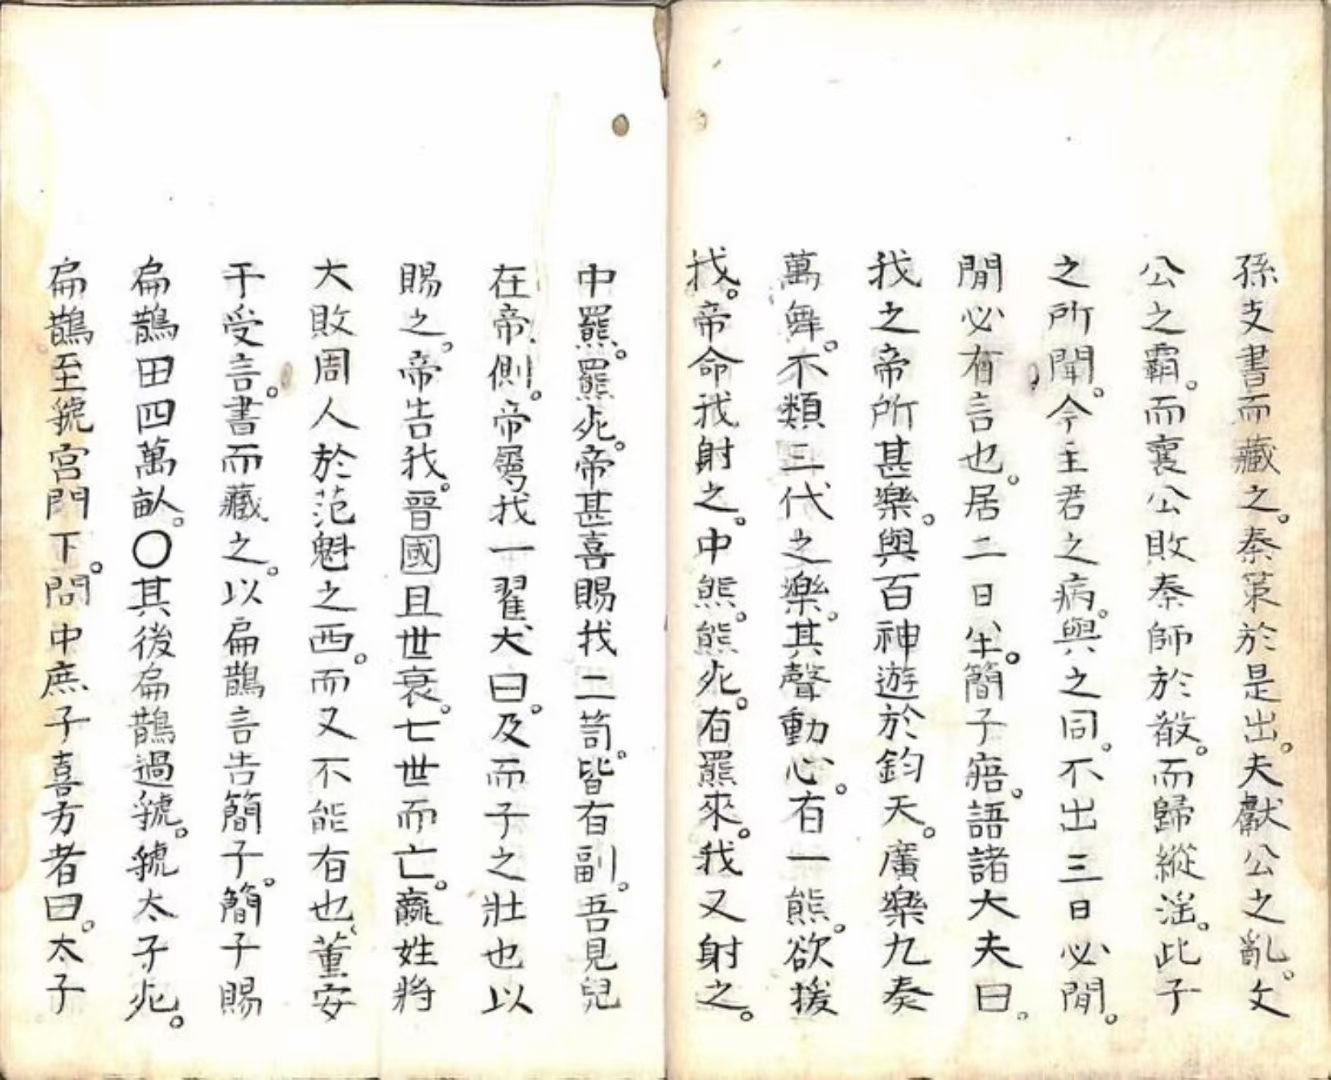 孫支書而藏之。秦策於是出。夫獻公之亂。文
公之霸。而襄公敗秦師於殽。而歸縱淫。此子
之所聞。今主君之病。與之同。不出三日必閒。
閒必有言也。居二日半。簡子寤。語諸大夫曰。
我之帝所甚樂。與百神遊於鈞天。廣樂九奏
萬舞。不類三代之樂。其聲動心。有一熊。欲援
我。帝命我射之。中熊。熊死。有羆來。我又射之。
中羆。羆死。帝甚喜賜我二笥。皆有副。吾見兒
在帝側。帝屬我一翟犬曰。及而子之壯也以
賜之。帝告我。晉國且世衰。七世而亡。嬴姓將
大敗周人於范魁之西。而又不能有也。董安
于受言。書而藏之。以扁鵲言告簡子。簡子賜
扁鵲田四萬畝。〇其後扁鵲過虢。虢太子死。
扁鵲至虢宮門下。問中庶子喜方者曰。太子